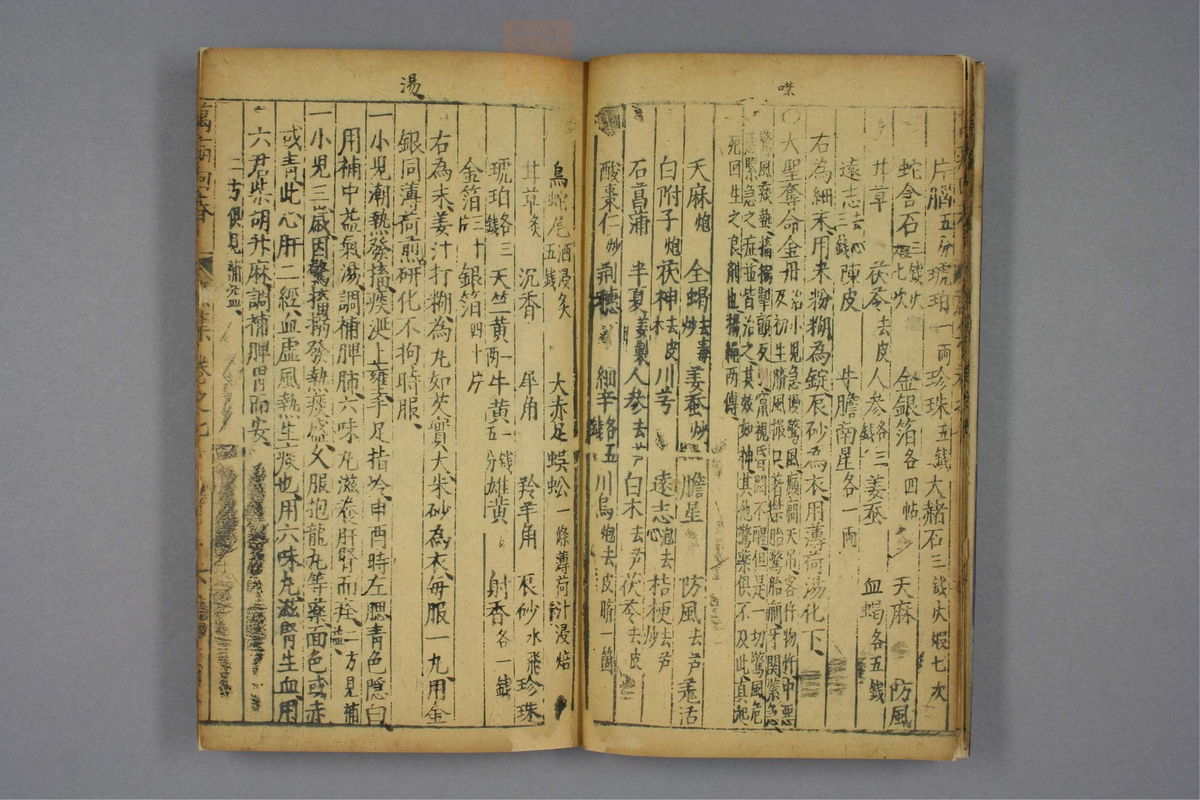 噤
片腦五分 琥珀一兩 珍珠五錢 大赭石三錢火煆七次
蛇含石三錢火煆七次 金銀箔各四帖 天麻 防風
甘草 茯苓去皮 人參各三錢 姜蚕 血蝎各五錢
遠志去心三錢 陳皮 牛膽南星各一兩
右為細末用米粉糊為錠辰砂為衣用薄荷湯化下
○大聖奪命金丹治小兒急慢驚風癲癇天吊客忤物忤中惡
及初生臍風撮口著禁胎驚胎癇牙関緊急
驚風痰熱搐搦掣頭反引窜視昏悶不醒但是一切驚風危
惡緊急之症並皆治之其效如神其他驚藥俱不及此真起
死回生之良劑也楊絕两傳
天麻炮 全蝎去毒炒 姜蚕炒 膽星 防風去芦 羌活
白附子炮 茯神去皮木 川芎 遠志泡去心 桔梗去芦炒
石菖蒲 半夏姜製 人參去芦 白术去芦 茯苓去皮
酸棗仁炒 荊穗 細辛各五錢 川烏炮去皮臍一箇
湯
烏蛇尾酒浸炙五錢 大赤足蜈蚣一條薄荷汁浸焙
甘草炙 沉香 犀角 羚羊角 辰砂水飛 珍珠
琥珀各三錢 天竺黃一兩 牛黃一錢五分 雄黃 射香各一錢
金箔三十片 銀箔四十片
右為末姜汁打糊為丸如芡實大朱砂為衣每服一丸用金
銀同薄荷煎研化不拘時服
一小兒潮熱發搐痰涎上壅手足指冷申酉時左腮青色隱白
用補中益氣湯調補脾肺六味丸滋養肝腎而痊二方見補益
一小兒三歲因驚搐搦發熱痰盛久服抱龍丸等藥面色或赤
或青此心肝二經血虛風熱生痰也用六味丸滋腎生血用
六君柴胡升麻調補脾胃而安
二方俱見補益
萬病回春 卷之七